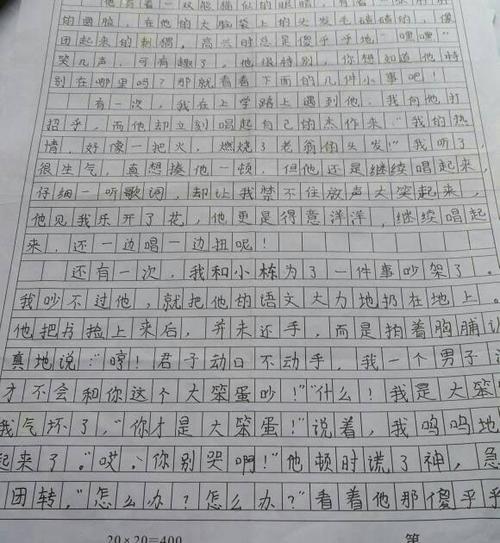 他有着一双熊猫似的眼睛，有着一张胖胖
的圆脸，在他的大脑袋上的头发毛碴碴的，像
团起来的刺猬，高兴时总是傻乎乎地“嘿嘿”
笑几声，可有趣了，他很特别，你想知道他特
别在哪里吗？那就看看下面的几件小事吧！
有一次，我在上学路上遇到他，我向他打
招乎，而他却立刻唱起自己的杰作来“我的热
情，好像一把火，燃烧了老翁的头发！”我听了，
很生气，真想揍他一顿，但他还是继续唱起来，
仔细一听歌词，却让我禁不住放声大笑起来，
他见我乐开了花，他更是得意洋洋，继续唱起
来，还一边唱一边扭呢！
还有一次，我和小栋为了一件事吵架了。
我吵不过他，就把他的语文书大力地扔在地上。
他把书捡上来后，并未还手，而是拍着胸脯认
真地说：“哼！君子动口不动手，我一个男子
才不会和你这个大笨蛋吵！”“什么！我是大笨
我气坏了，“你才是大笨蛋！”说着，我呜呜地
起来了。“哎，你别哭啊！”他顿时谎了神，急
团转，“怎么办？怎么办？”看着他那傻乎乎
20×20=400
第